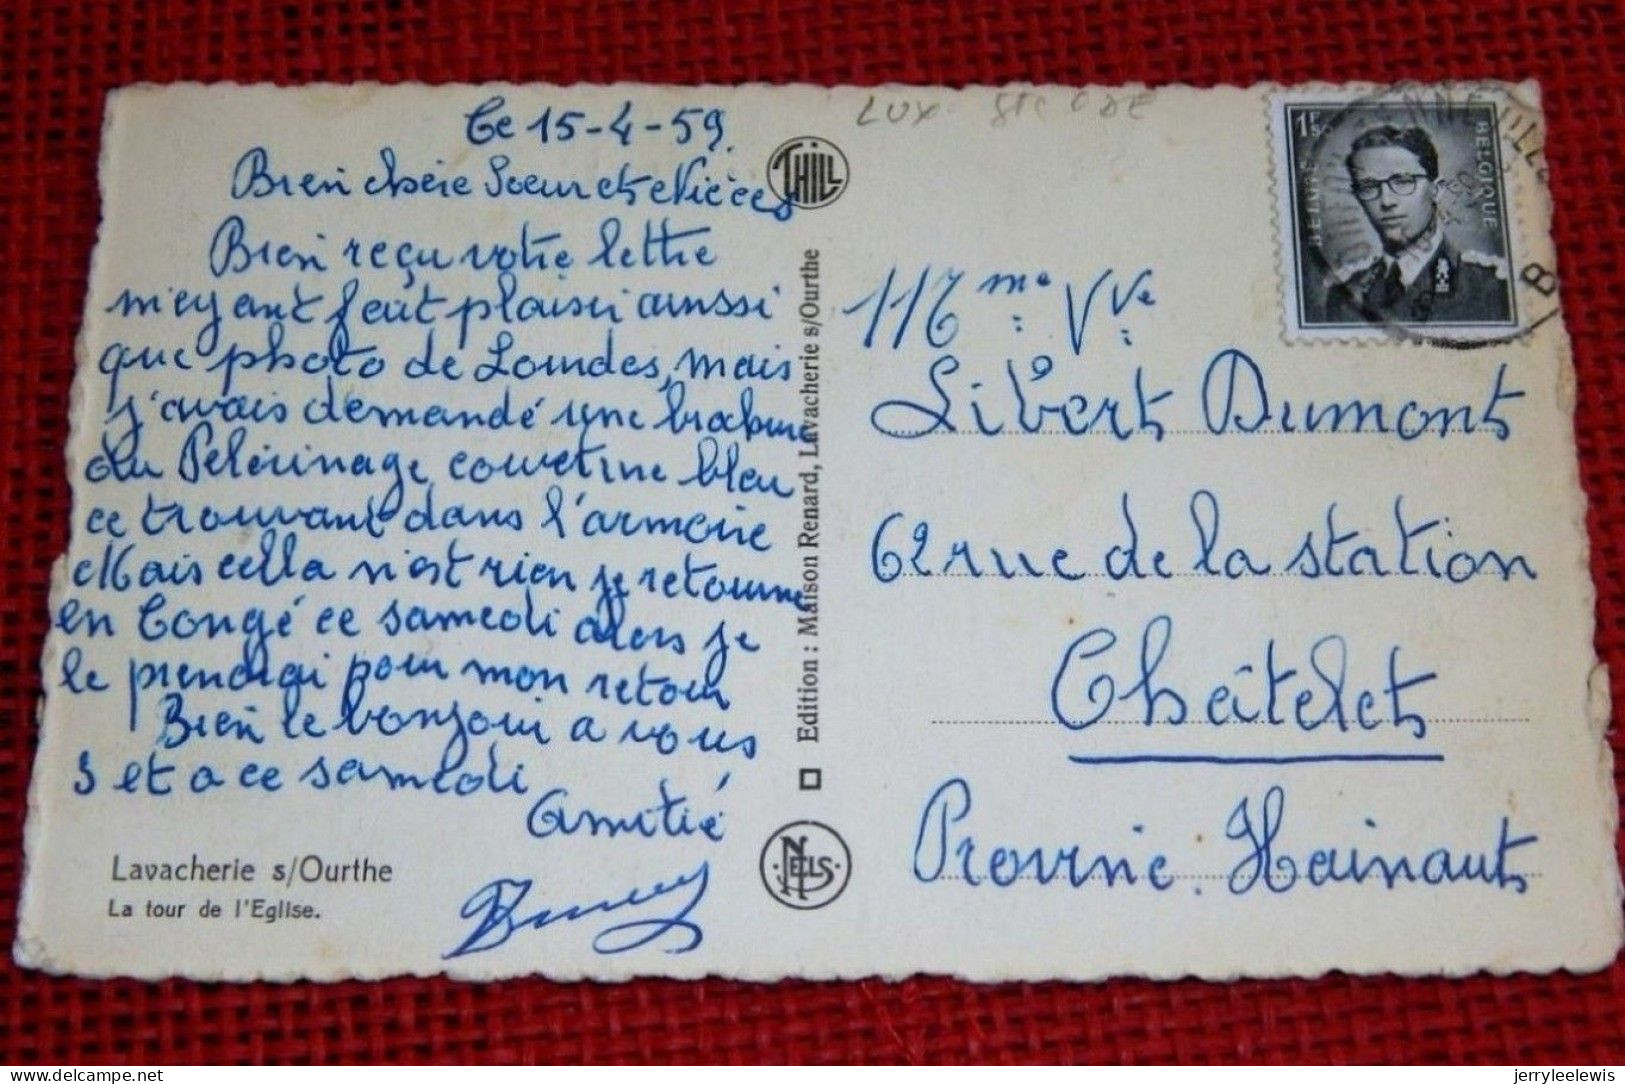 Ce 15-4-59.
Bien chère Soeur et Nièces
Bien reçu votre lettre
m'eyant fait plaisir aussi
que photo de Lourdes, mais
j'avais demandé une brochure
du Pelérinage couverture bleu
ce trouvant dans l'armoire
Mais cella n'est rien je retourne
en Congé ce samedi alors je
le prendrai pour mon retour
Bien le bonjour a vous
3 et a ce samedi
Amitié
Lavacherie s/Ourthe
La tour de l'Eglise.
THILL
Edition : Maison Renard, Lavacherie s/Ourthe
NELS
LUX
1F5
BELGIQUE
BELGIE
B
Mme Vve
Libert Dumont
62 rue de la station
Châtelet
Provinc. Hainaut
delcampe.net
jerryleelewis